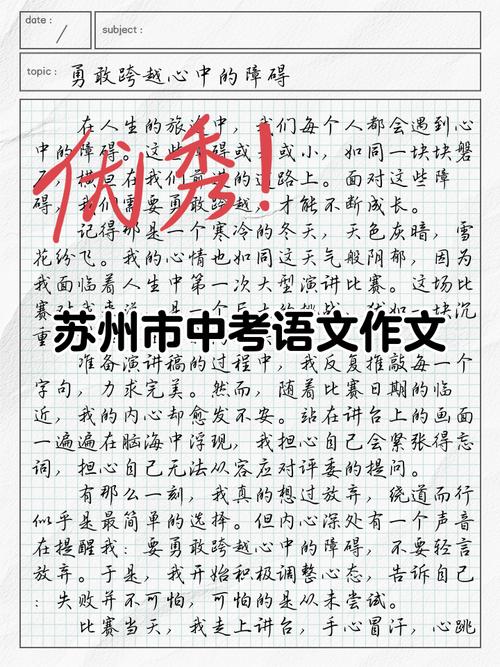 date:
subject:
topic: 勇敢跨越心中的障碍
在人生的旅途中，我们每个人都会遇到心
中的障碍。这些障碍或大或小，如同一块块磐
横亘在我们前进的道路上。面对这些障
碍，我们需要勇敢跨越，才能不断成长。
优秀！
记得那是一个寒冷的冬天，天色灰暗，雪
花纷飞。我的心情也如同这天气般阴郁，因为
我面临着人生中第一次大型演讲比赛。这场比
赛对我来说，是一个巨大的挑战，犹如一块沉
重
苏州市中考语文作文
准备演讲稿的过程中，我反复推敲每一个
字句，力求完美。然而，随着比赛日期的临
近，我的内心却愈发不安。站在讲台上的画面
一遍遍在脑海中浮现，我担心自己会紧张得忘
词，担心自己无法从容应对评委的提问。
有那么一刻，我真的想过放弃，绕道而行
似乎是最简单的选择。但内心深处有一个声音
在提醒我：要勇敢跨越心中的障碍，不要轻言
放弃。于是，我开始积极调整心态，告诉自己
：失败并不可怕，可怕的是从未尝试。
比赛当天，我走上讲台，手心冒汗，心跳